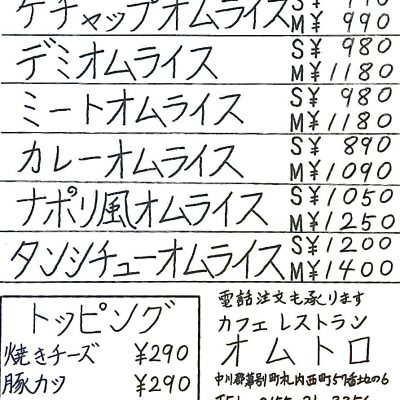 ケチャップオムライス M¥990
デミオムライス S¥980 M¥1180
ミートオムライス S¥980 M¥1180
カレーオムライス S¥890 M¥1090
ナポリ風オムライス S¥1050 M¥1250
タンシチューオムライス S¥1200 M¥1400
トッピング
焼きチーズ ¥290
豚カツ ¥290
電話注文も承ります
カフェレストラン
オムトロ
中川郡幕別町札内西町57番地の6